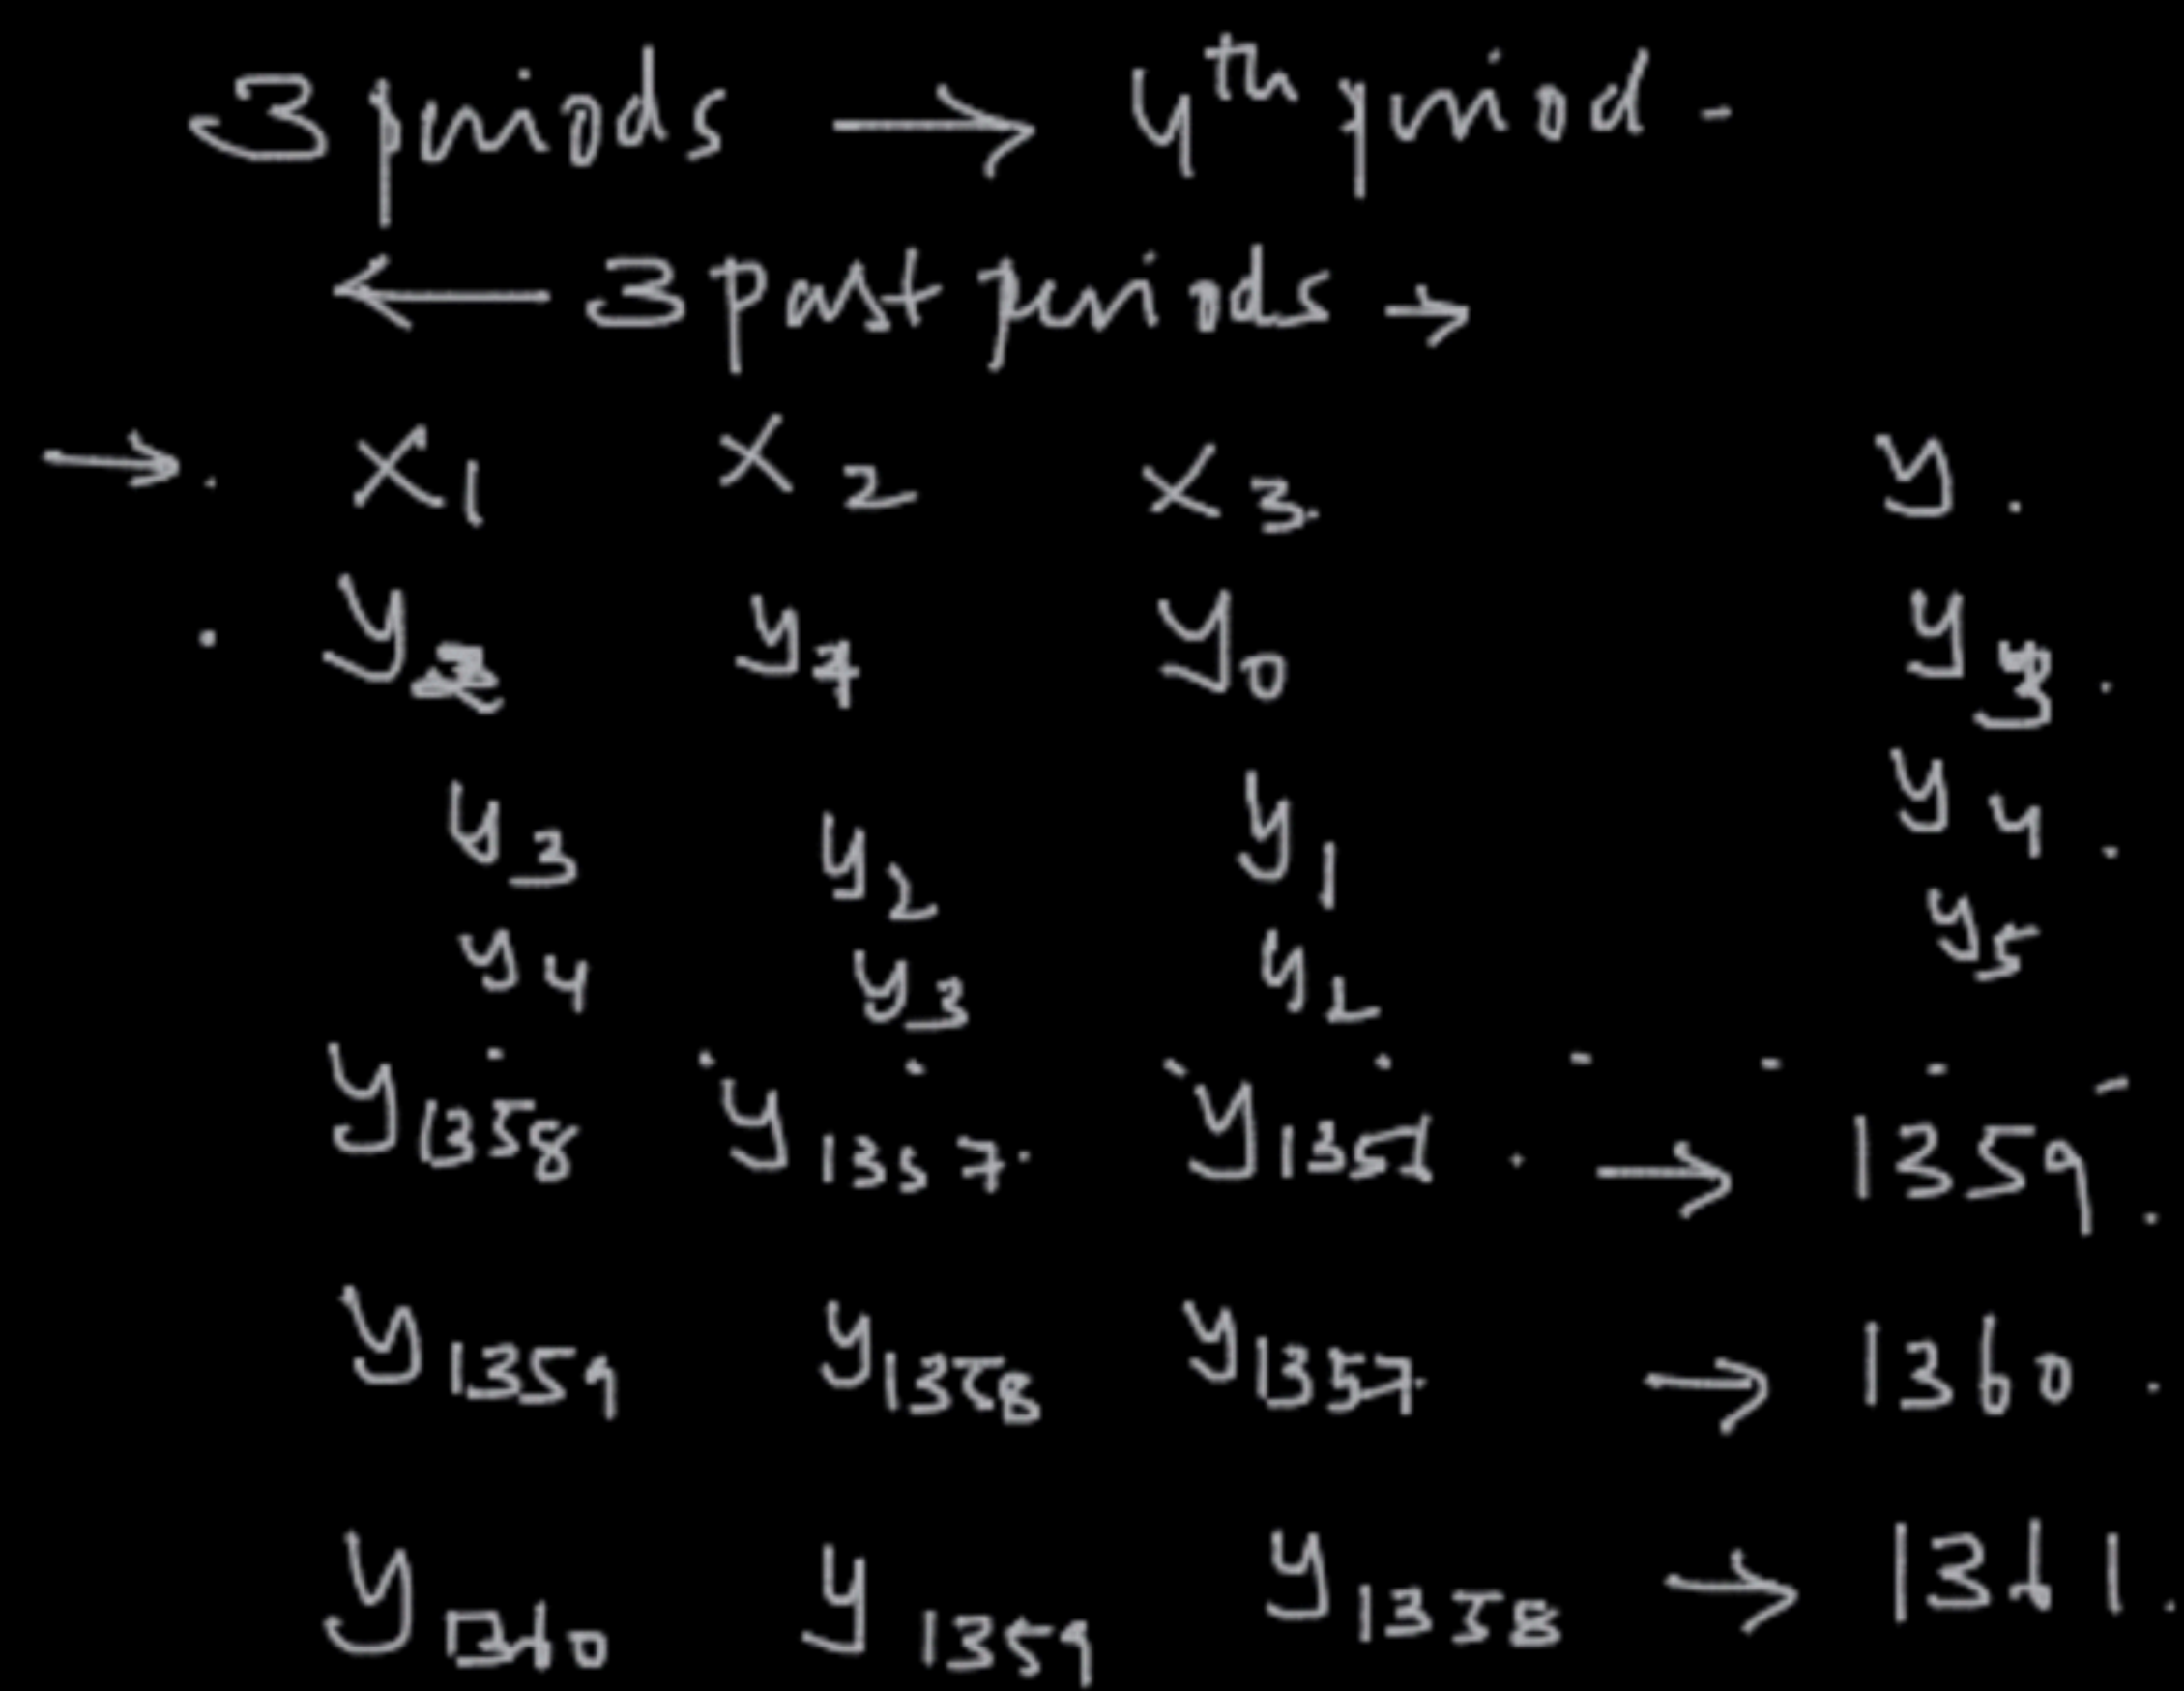 3 periods → 4th period -
← 3 past periods →
→. x1 x2 x3. y.
. y2 y1 y0 y3.
y3 y2 y1 y4.
y4 y3 y2 y5
y1358 y1357. . → 1359.
y1359 y1358 y1357. → 1360.
y1360 y1359 y1358 → 1361.